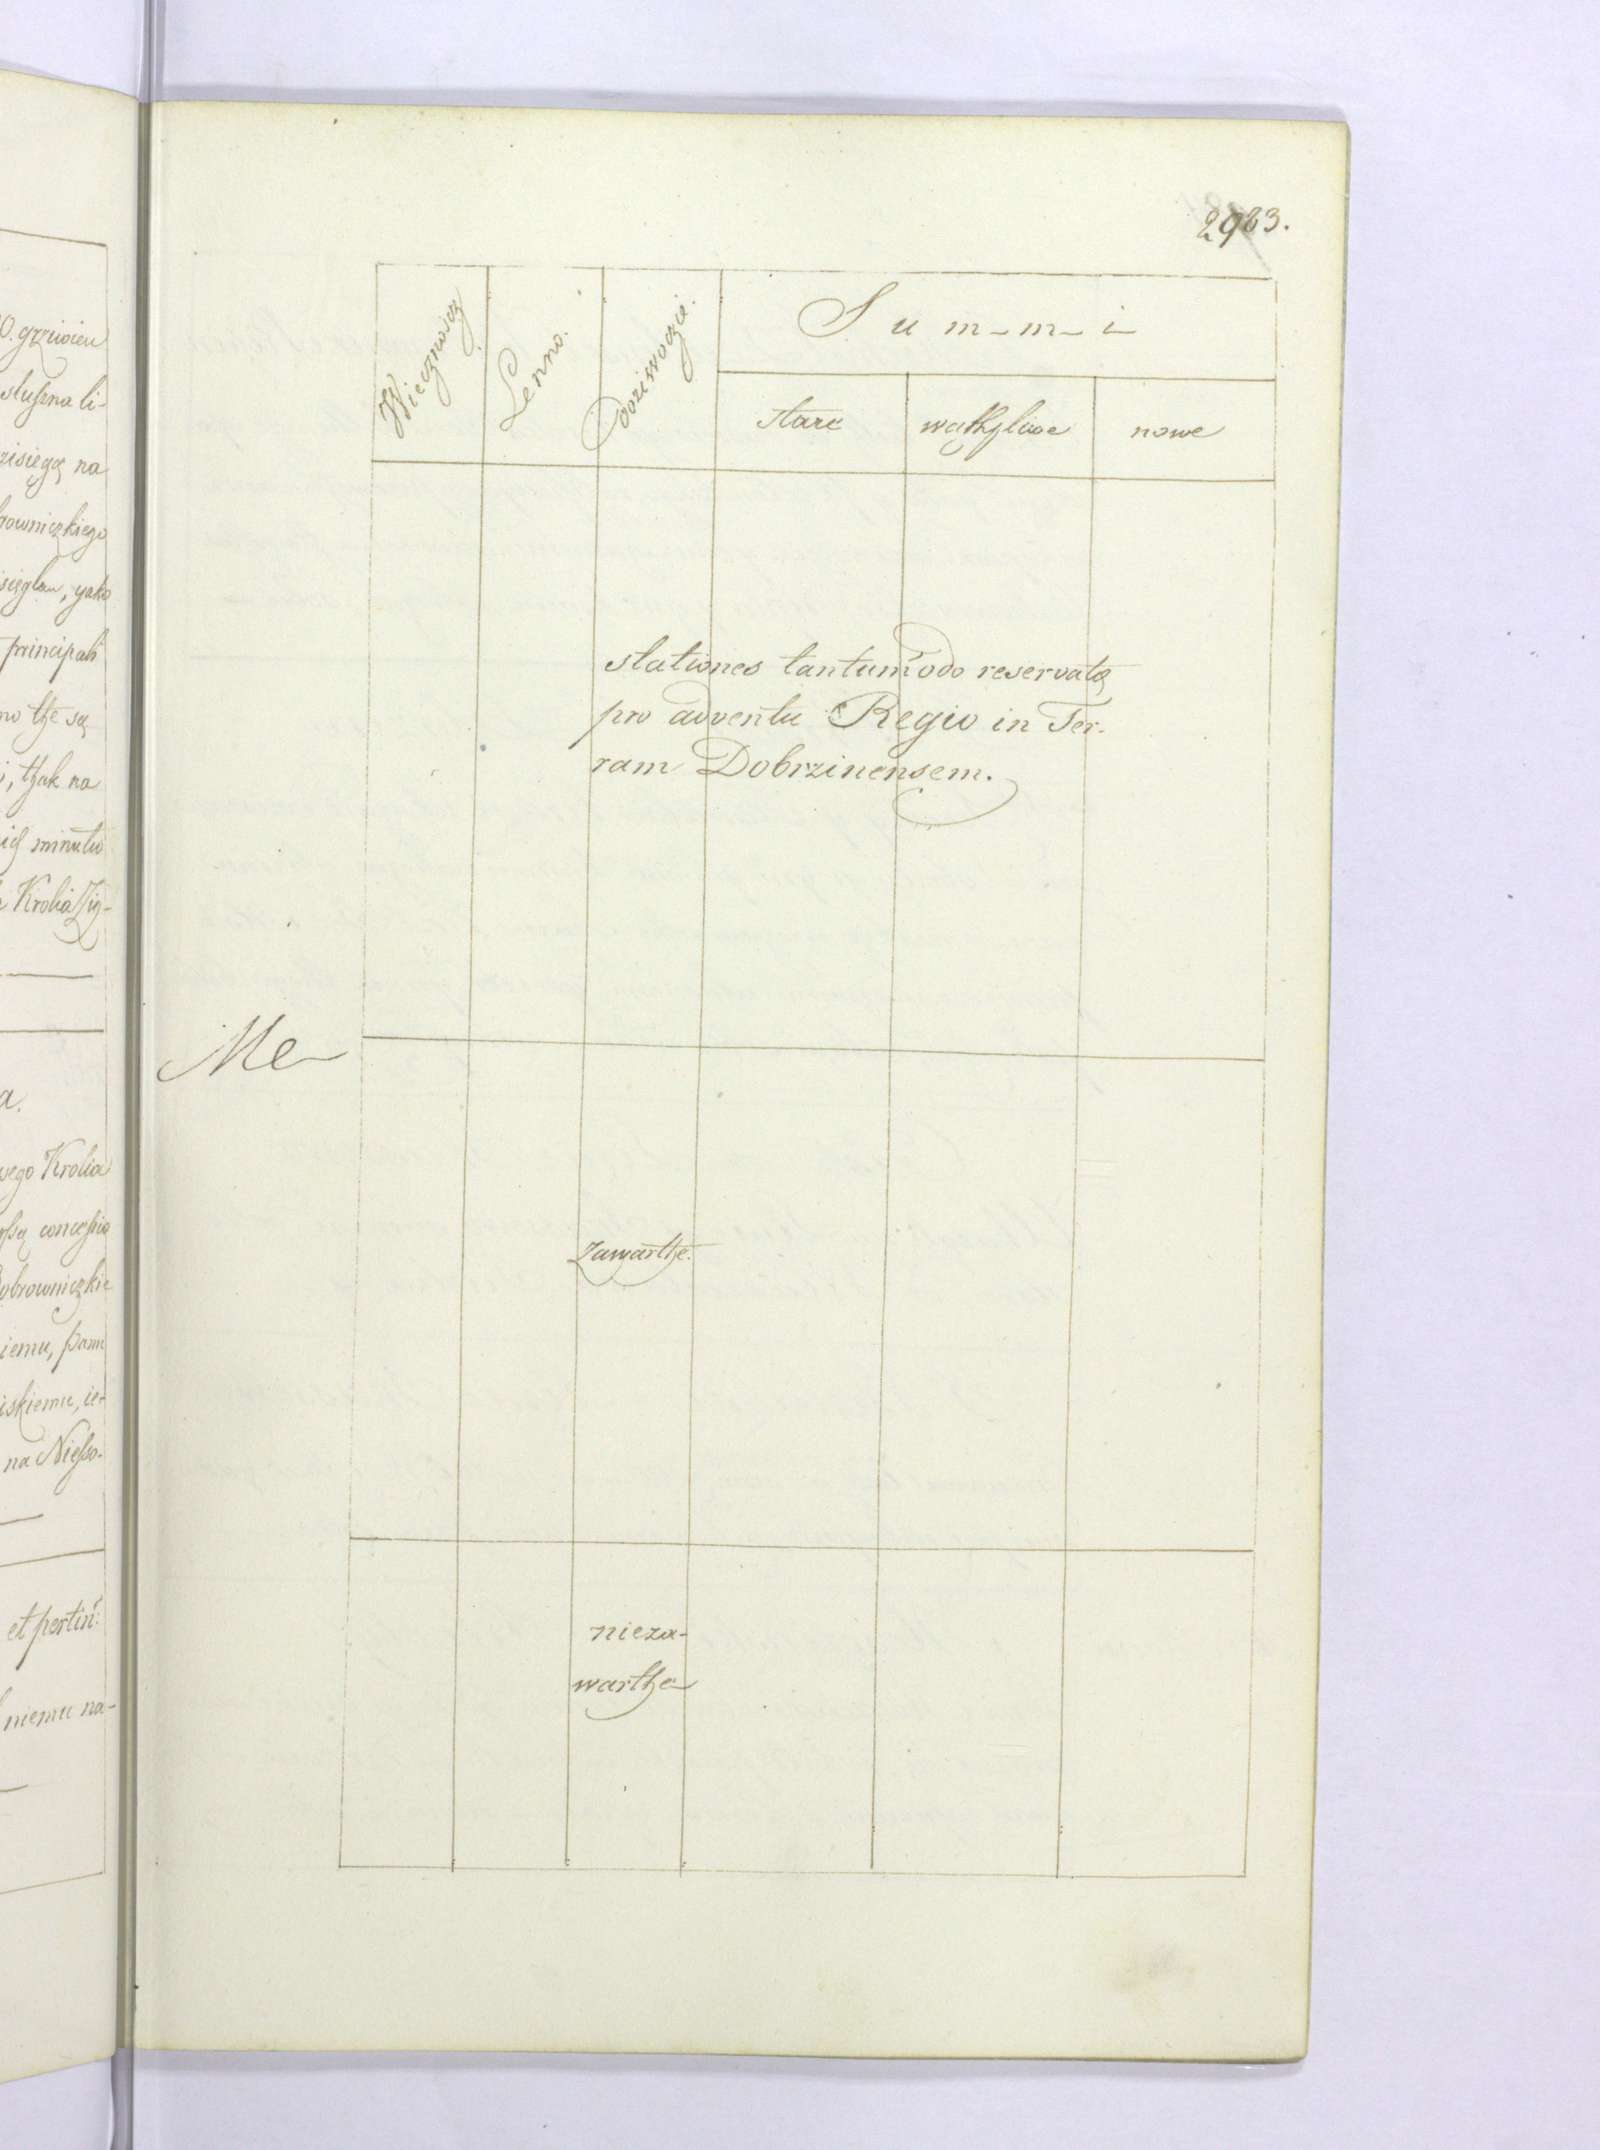 0. grziwien
sluszna li-
zisięgę na
rowniczkiego
sięglem, yako
principali
no the są
i, thak na
minutu
Krolia Zig-
a.
wego Krolia
concessio
obrowniczkie
iemu, panu
iskiemu, ie-
na Niesso-
et pertin:
niemu na-
2983.
Wiecznoscz
Lenno.
Doziwocie.
Summi
stare wathpliwe nowe
stationes tantumodo reservatę
pro adventu Regio in Ter-
ram Dobrzinensem.
Me
zawarthe.
nieza-
warthe